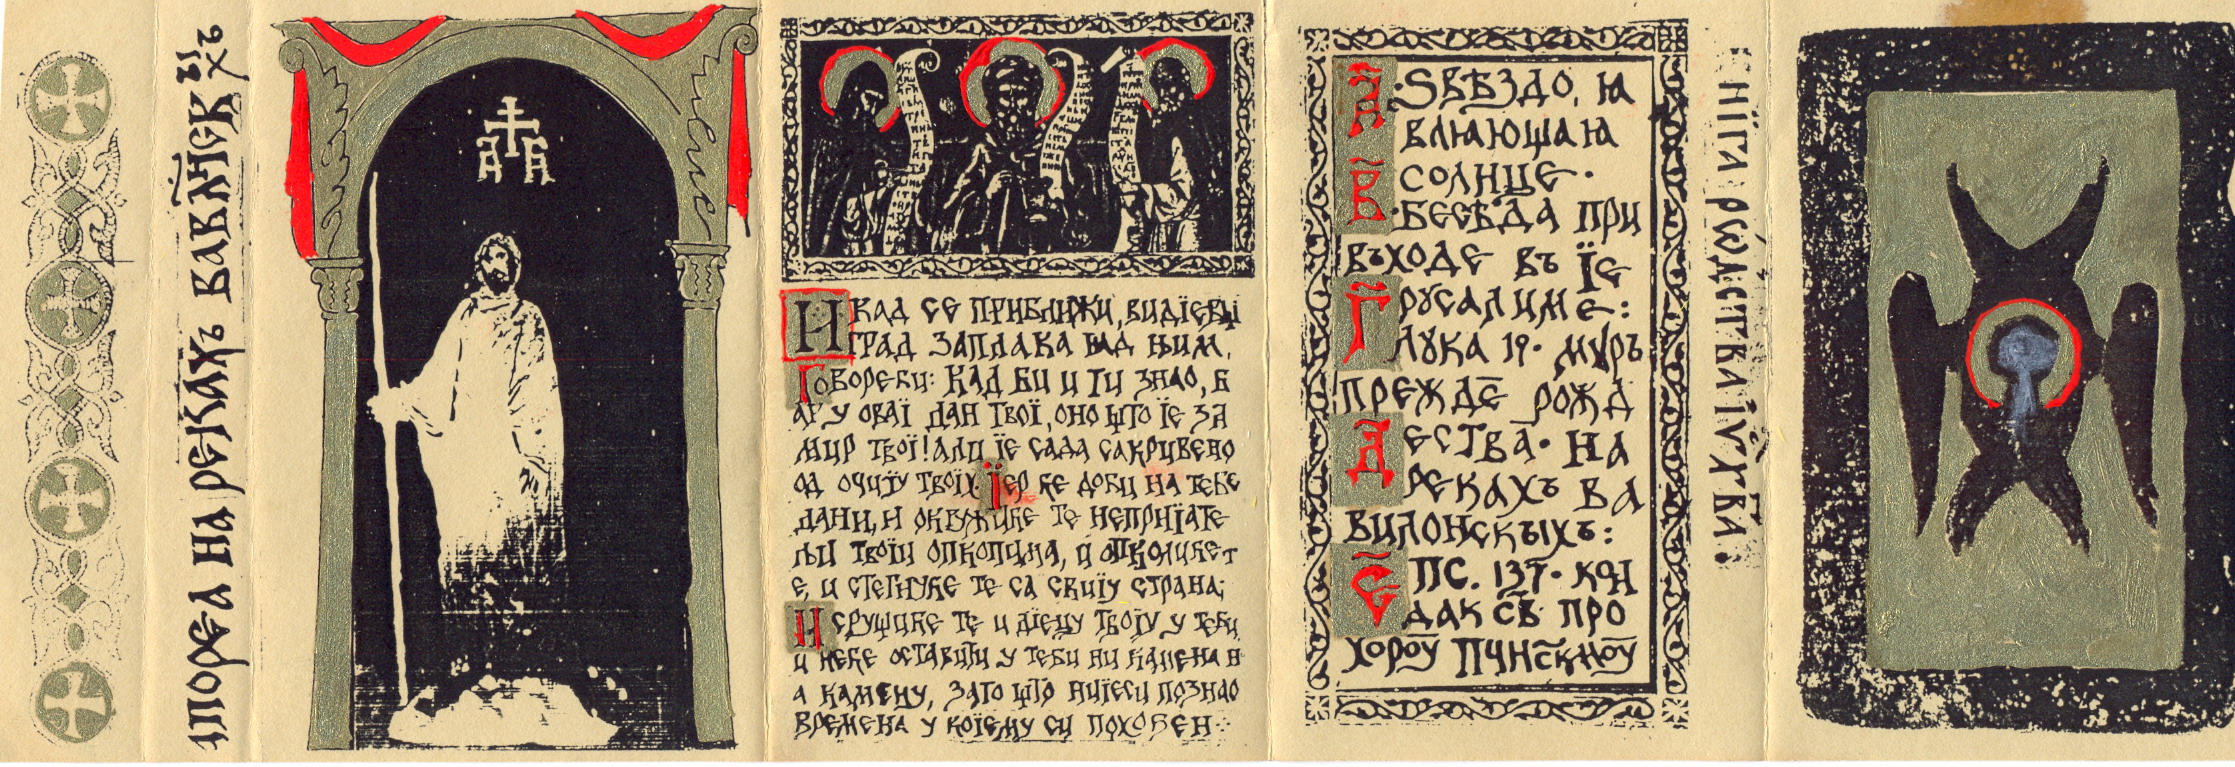 ПОРЕА НА РЕКАХЪ ВАВЛ҃НСКЫХЪ
И КАД СЕ ПРИБЛИЖИ, ВИДЇЕВШИ
ГРАД ЗАПЛАКА НАД ЊИМ,
ГОВОРЕЋИ: КАД БИ И ТИ ЗНАО, Б
АР У ОВАЇ ДАН ТВОЇ, ОНО ШТО ЇЕ ЗА
МИР ТВОЇ! АЛИ ЇЕ САДА САКРИВЕНО
ОД ОЧИЇУ ТВОЇХ. ЇЕР ЋЕ ДОЋИ НА ТЕБЕ
ДАНИ, И ОКРУЖИЋЕ ТЕ НЕПРИЇАТЕ
ЉИ ТВОЇИ ОПКОПИМА, И ОПКОЛИЋЕ Т
Е, И СТЕГНУЋЕ ТЕ СА СВИЇУ СТРАНА;
И СРУШИЋЕ ТЕ И ДЇЕЦУ ТВОЇУ У ТЕБИ
И НЕЋЕ ОСТАВИТИ У ТЕБИ НИ КАМЕНА Н
А КАМЕНУ, ЗАТО ШТО НИЇЕСИ ПОЗНАО
ВРЕМЕНА У КОЇЕМУ СИ ПОХОЂЕН
А҃·ЅВѢЗДО, Ꙗ
ВЛꙖЮЩАꙖ
СОЛНЦЕ·
В҃·БЕСѢДА ПРИ
ВЪХОДЕ ВЪ ЇЕ
РУСАЛИМЕ:
Г҃ ЛУКА 19· МУРЪ
ПРЕЖДЕ РОЖД
ЕСТВА· НА
Д҃ РЕКАХЪ ВА
ВИЛОНСКЫХЪ:
Е҃ ПС. 137· КОН
ДАК СВ҃ ПРО
ХОРОУ ПЧИНСКМОУ
КНЇГА РѠДСТВА ІУ ХТВА·